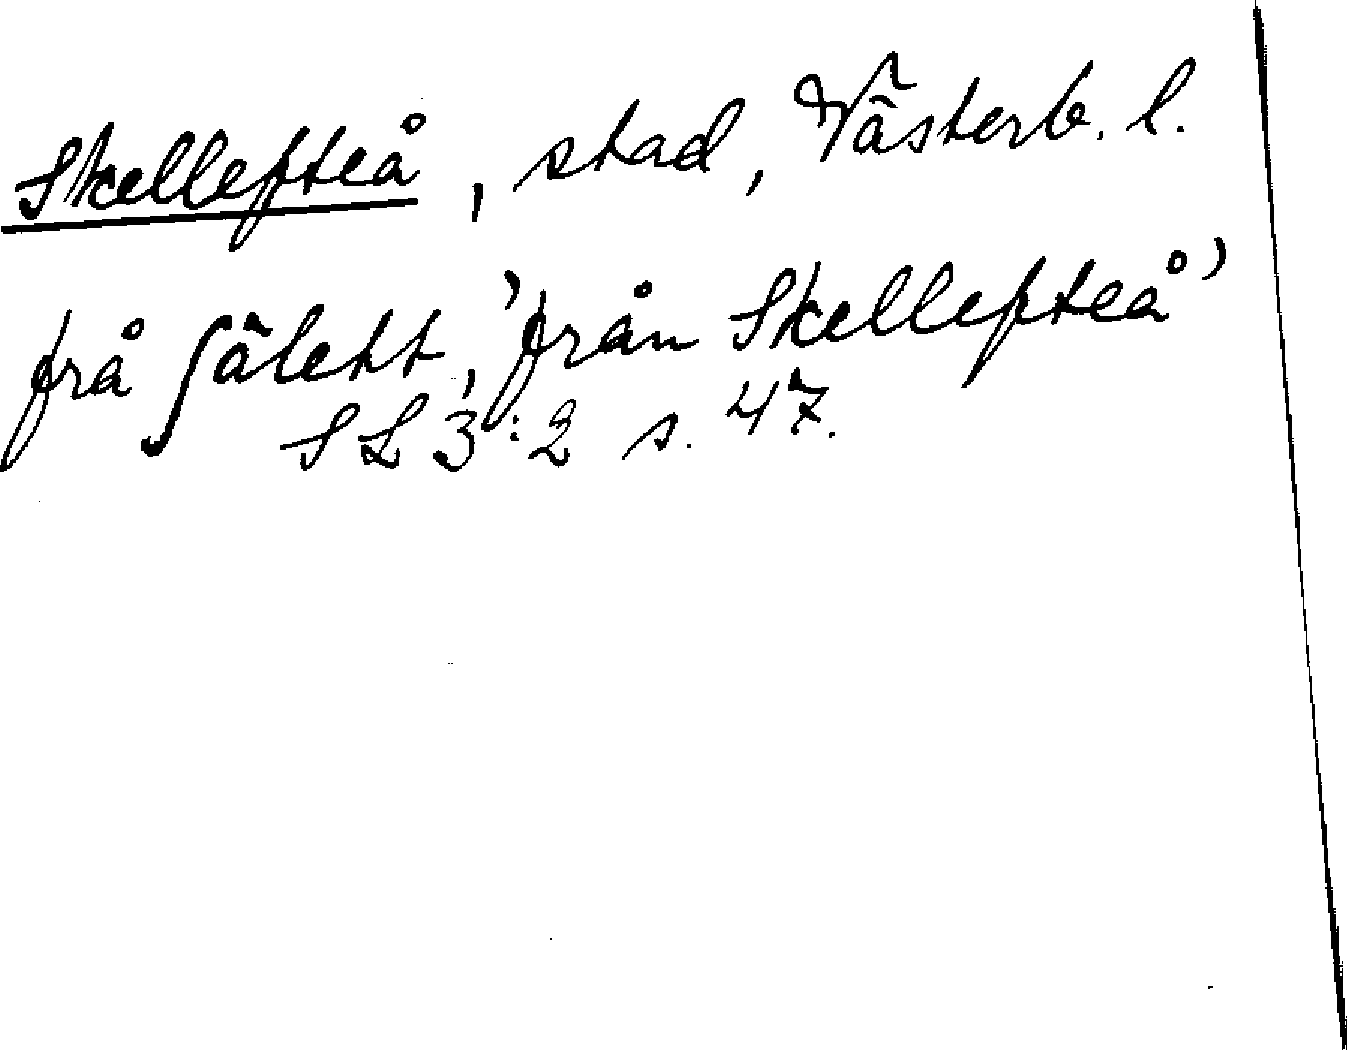 Skellefteå, stad, Västerb. l.
frå ʃäleht, 'från Skellefteå'
SL 3:2 s. 47.